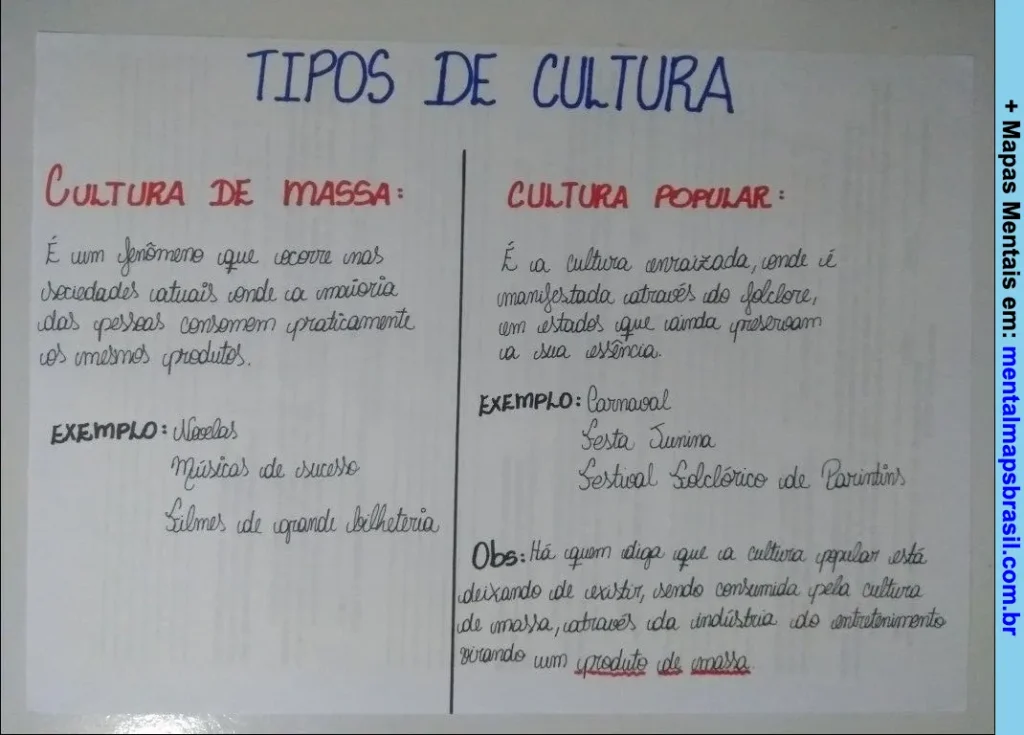 TIPOS DE CULTURA
CULTURA DE MASSA:
É um fenômeno que ocorre nas
sociedades atuais onde a maioria
das pessoas consomem praticamente
os mesmos produtos.
EXEMPLO: Novelas
Músicas de sucesso
Filmes de grande bilheteria
CULTURA POPULAR:
É a cultura enraizada, onde é
manifestada através do folclore,
em estados que ainda preservam
a sua essência.
EXEMPLO: Carnaval
Festa Junina
Festival Folclórico de Parintins
Obs: Há quem diga que a cultura popular está
deixando de existir, sendo consumida pela cultura
de massa, através da indústria do entretenimento
virando um produto de massa.
+ Mapas Mentais em: mentalmapsbrasil.com.br